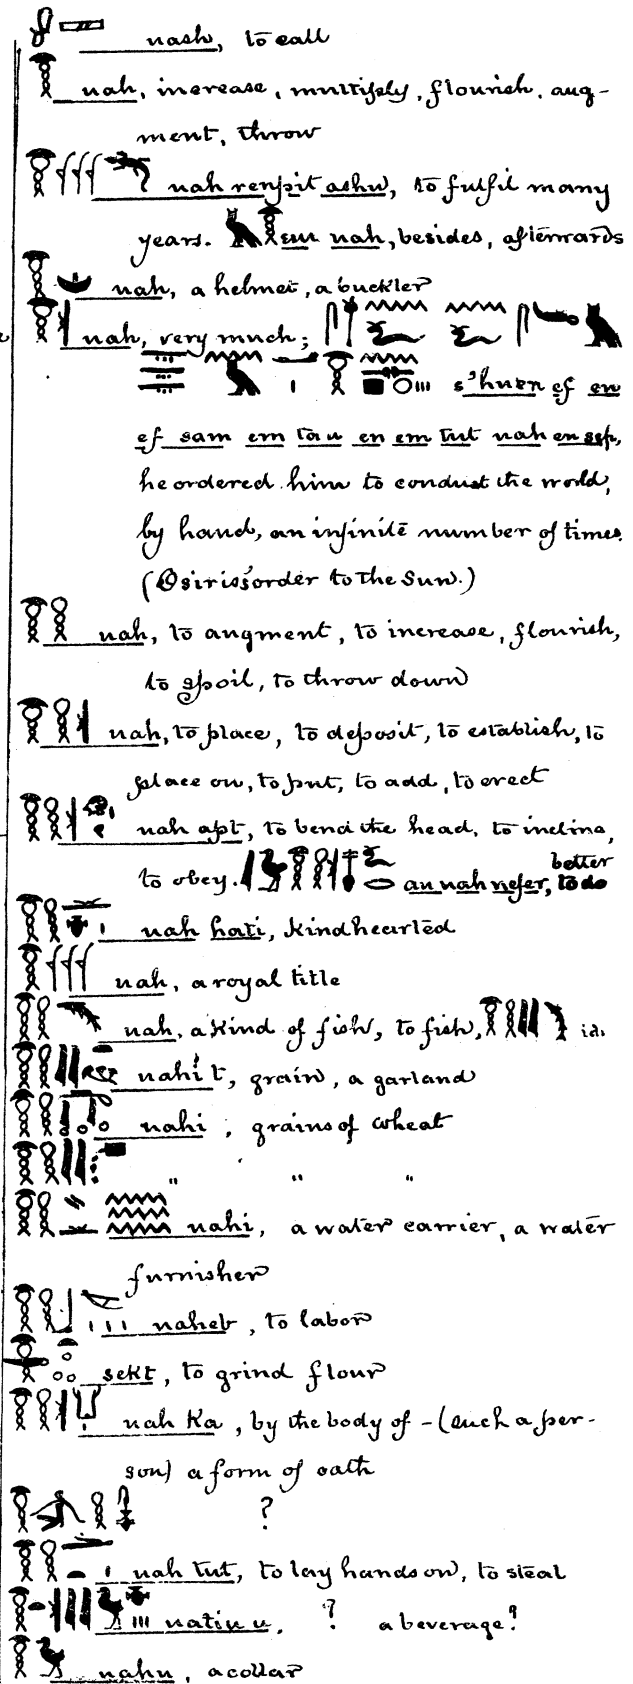 nash, to call
uah, increase, multiply, flourish, aug-
ment, throw
uah renpit ashu, to fulfil many
years. em uah, besides, afterwards
uah, a helmet, a buckler
uah, very much;
s'huen ef en
ef sam em tau en em tut uah en sep,
he ordered him to conduct the world,
by hand, an infinite number of times.
(Osiris' order to the Sun.)
uah, to augment, to increase, flourish,
to spoil, to throw down
uah, to place, to deposit, to establish, to
place on, to put, to add, to erect
uah apt, to bend the head, to incline,
to obey. au uah nefer, to do better
uah hati, kindhearted
uah, a royal title
uah, a kind of fish, to fish, id.
uahi t, grain, a garland
uahi, grains of wheat
" " "
uahi, a water carrier, a water
furnisher
uaheb, to labor
sekt, to grind flour
uah Ka, by the body of - (such a per-
son) a form of oath
?
uah tut, to lay hands on, to steal
uatiu u, ? a beverage?
uahu, a collar